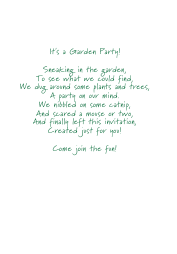 It's a Garden Party!
Sneaking in the garden,
To see what we could find,
We dug around some plants and trees,
A party on our mind.
We nibbled on some catnip,
And scared a mouse or two,
And finally left this invitation,
Created just for you!
Come join the fun!